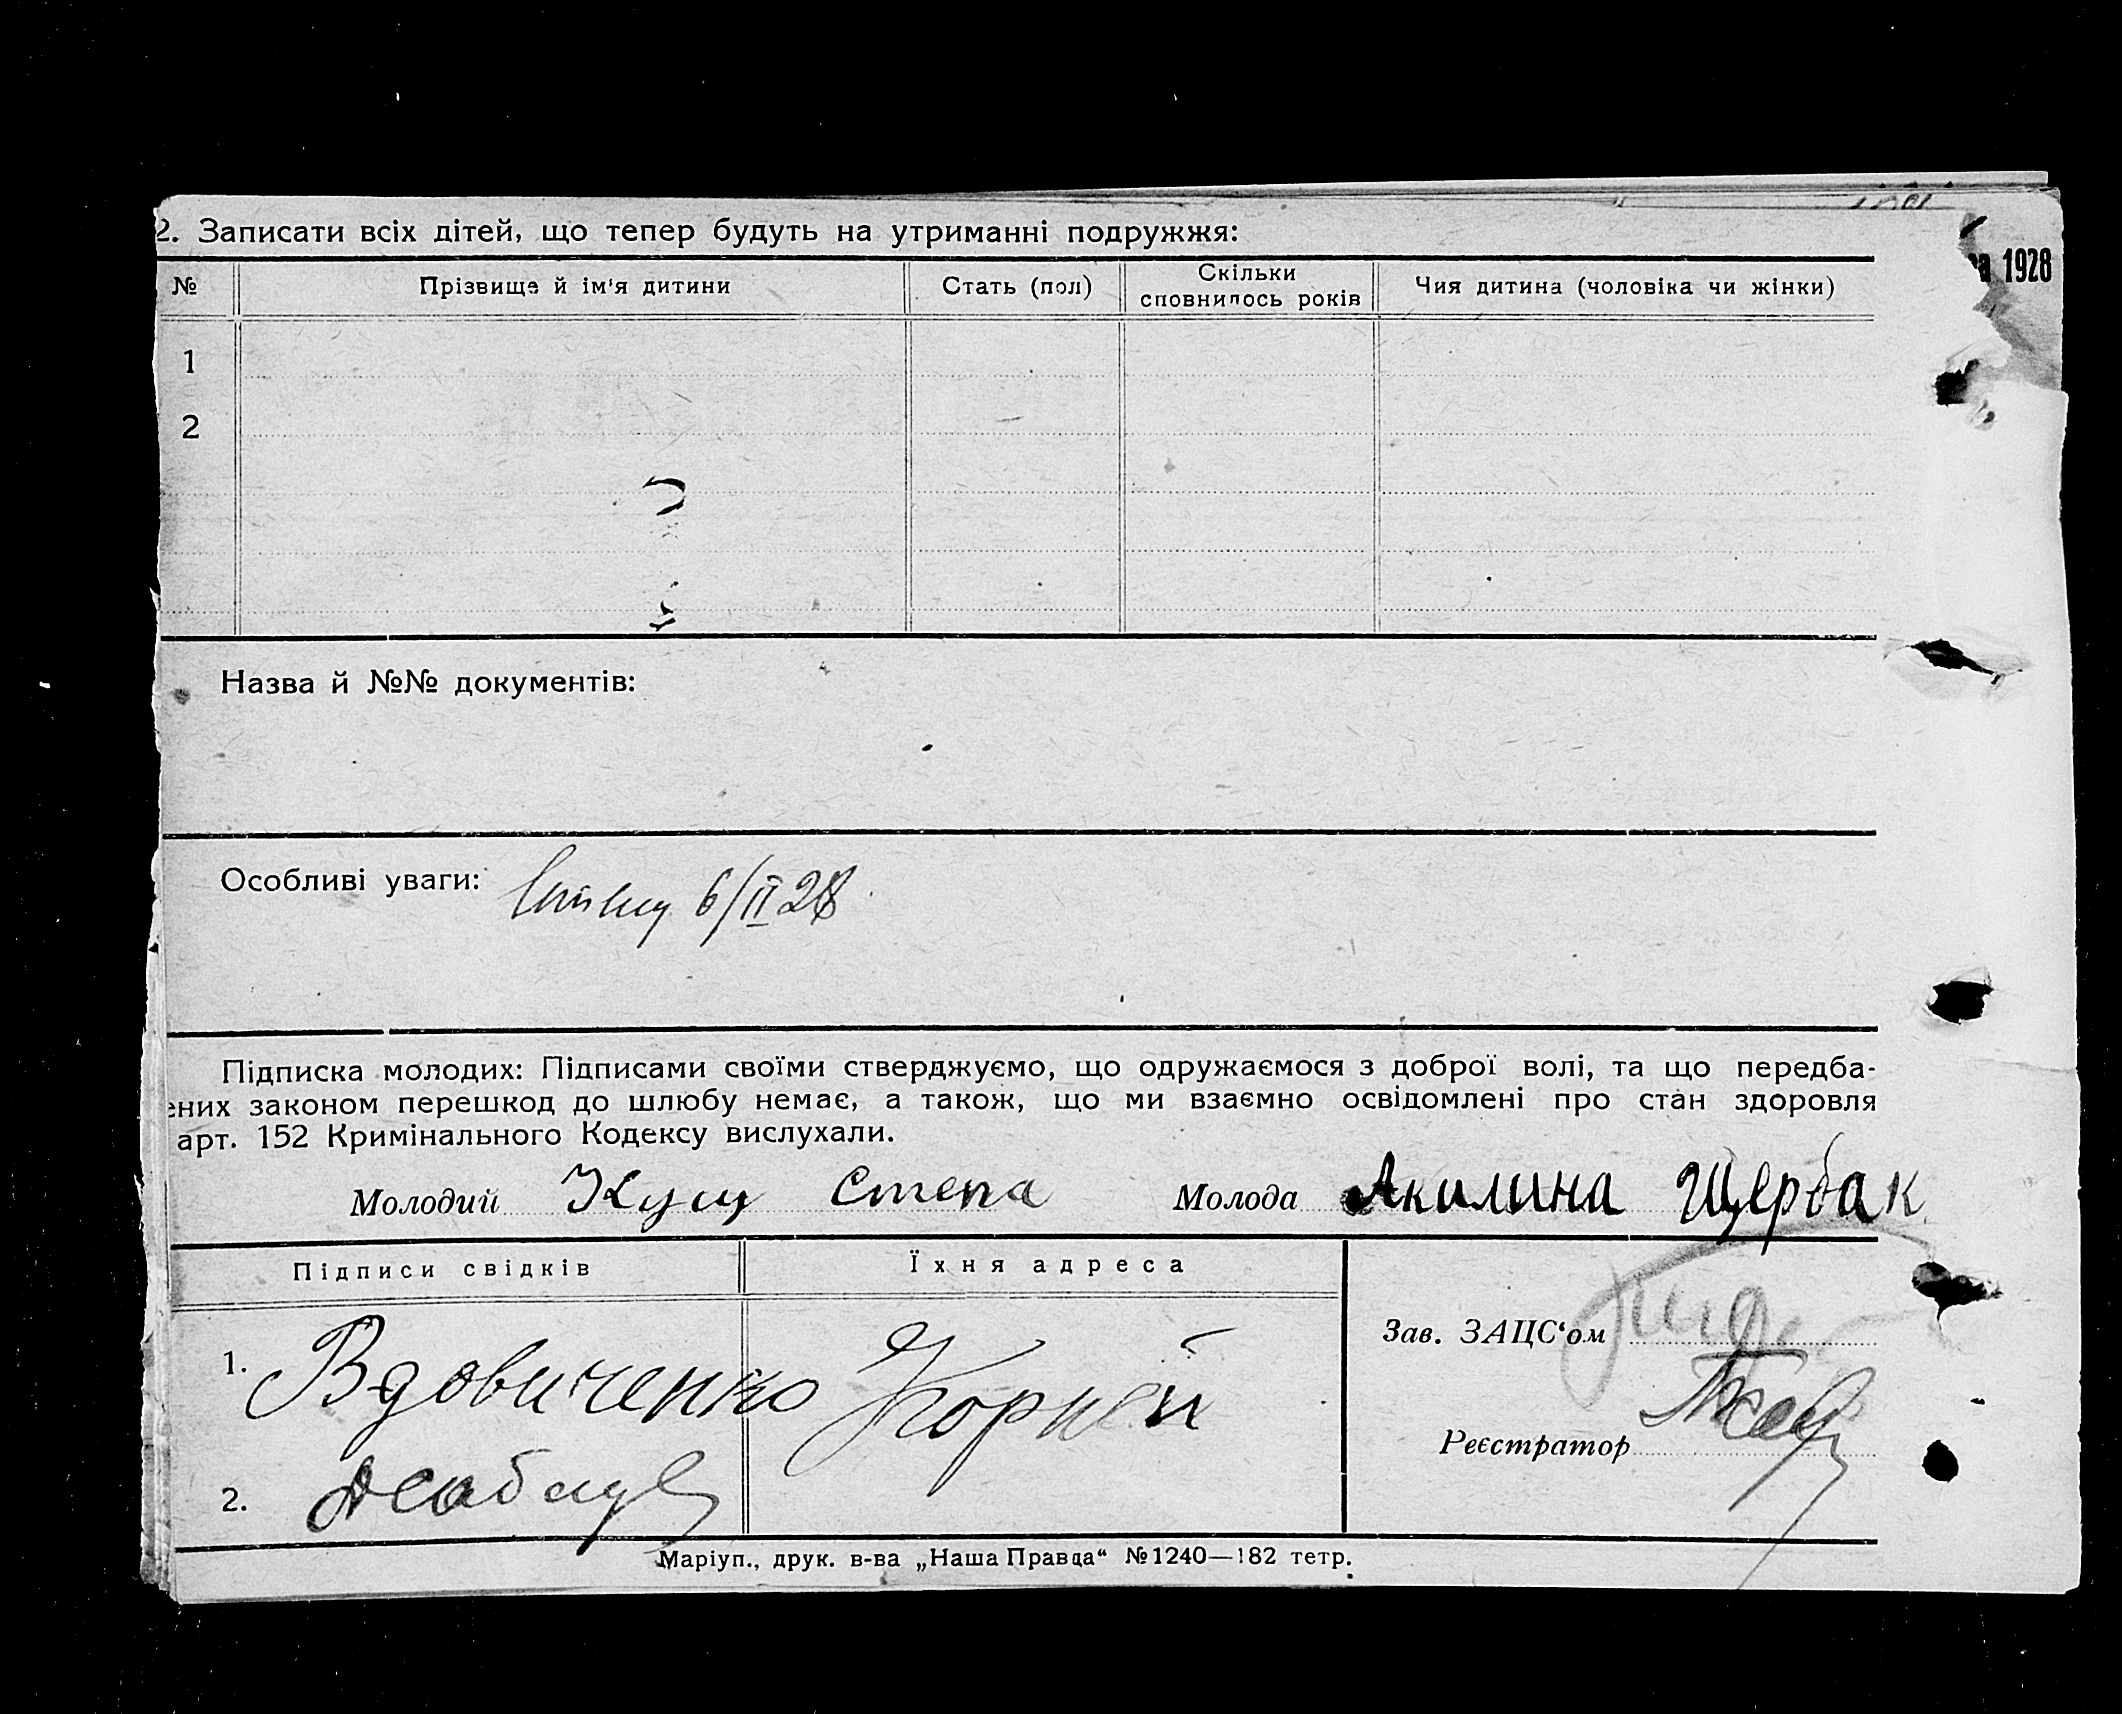 2. Записати всіх дітей, що тепер будуть на утриманні подружжя:
а 1928
№ Прізвище й ім'я дитини Стать (пол) Скільки сповнилось років Чия дитина (чоловіка чи жінки)
1
2
Назва й №№ документів:
Особливі уваги: 6/II 28
Підписка молодих: Підписами своїми стверджуємо, що одружаємося з доброї волі, та що передба-
ених законом перешкод до шлюбу немає, а також, що ми взаємно освідомлені про стан здоровля
арт. 152 Кримінального Кодексу вислухали.
Молодий Кущ Степа Молода Акилина Щербак
Підписи свідків Їхня адреса
Зав. ЗАЦС‘ом
1. Вдовиченко Корней
Реєстратор
2.
Маріуп., друк. в-ва „Наша Правда“ №1240—182 тетр.